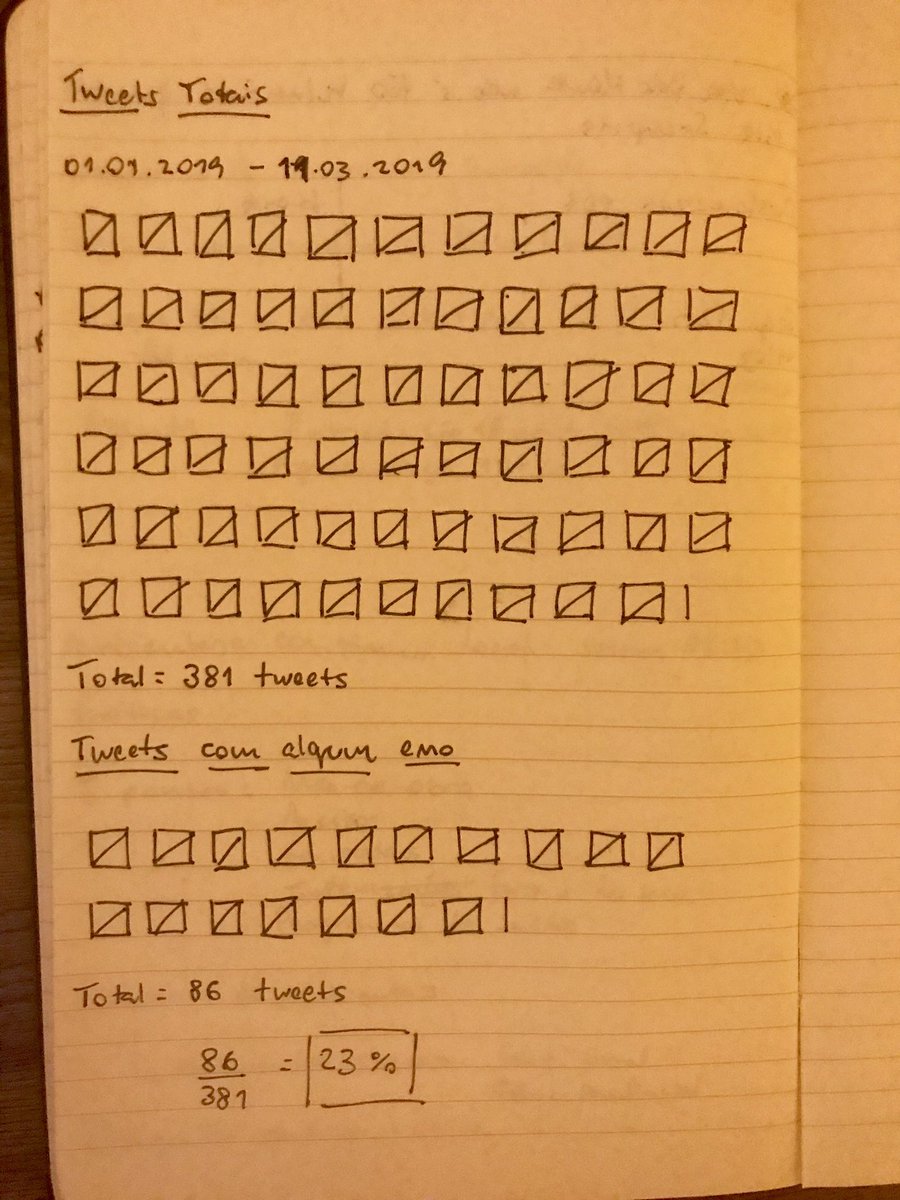 Tweets Totais
01.01.2019 - 19.03.2019
Total = 381 tweets
Tweets com algum emo
Total = 86 tweets
86
381
= 23 %